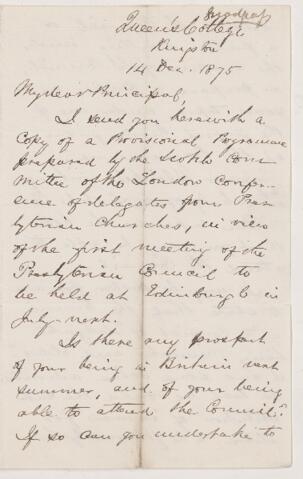 Queen's College
Kingston
14 Dec. 1875
My dear Principal,
I send you herewith a
Copy of a Provisional Programme
prepared by the Com
mittee of the London Confer-
ence of delegates from Pres
byterian Churches, in view
of the first meeting of the
Presbyterian Council to
be held at Edinburgh in
July next.
Is there any prospect
of your being in Britain next
summer, and of your being
able to attend the Council?
If so can you undertake to